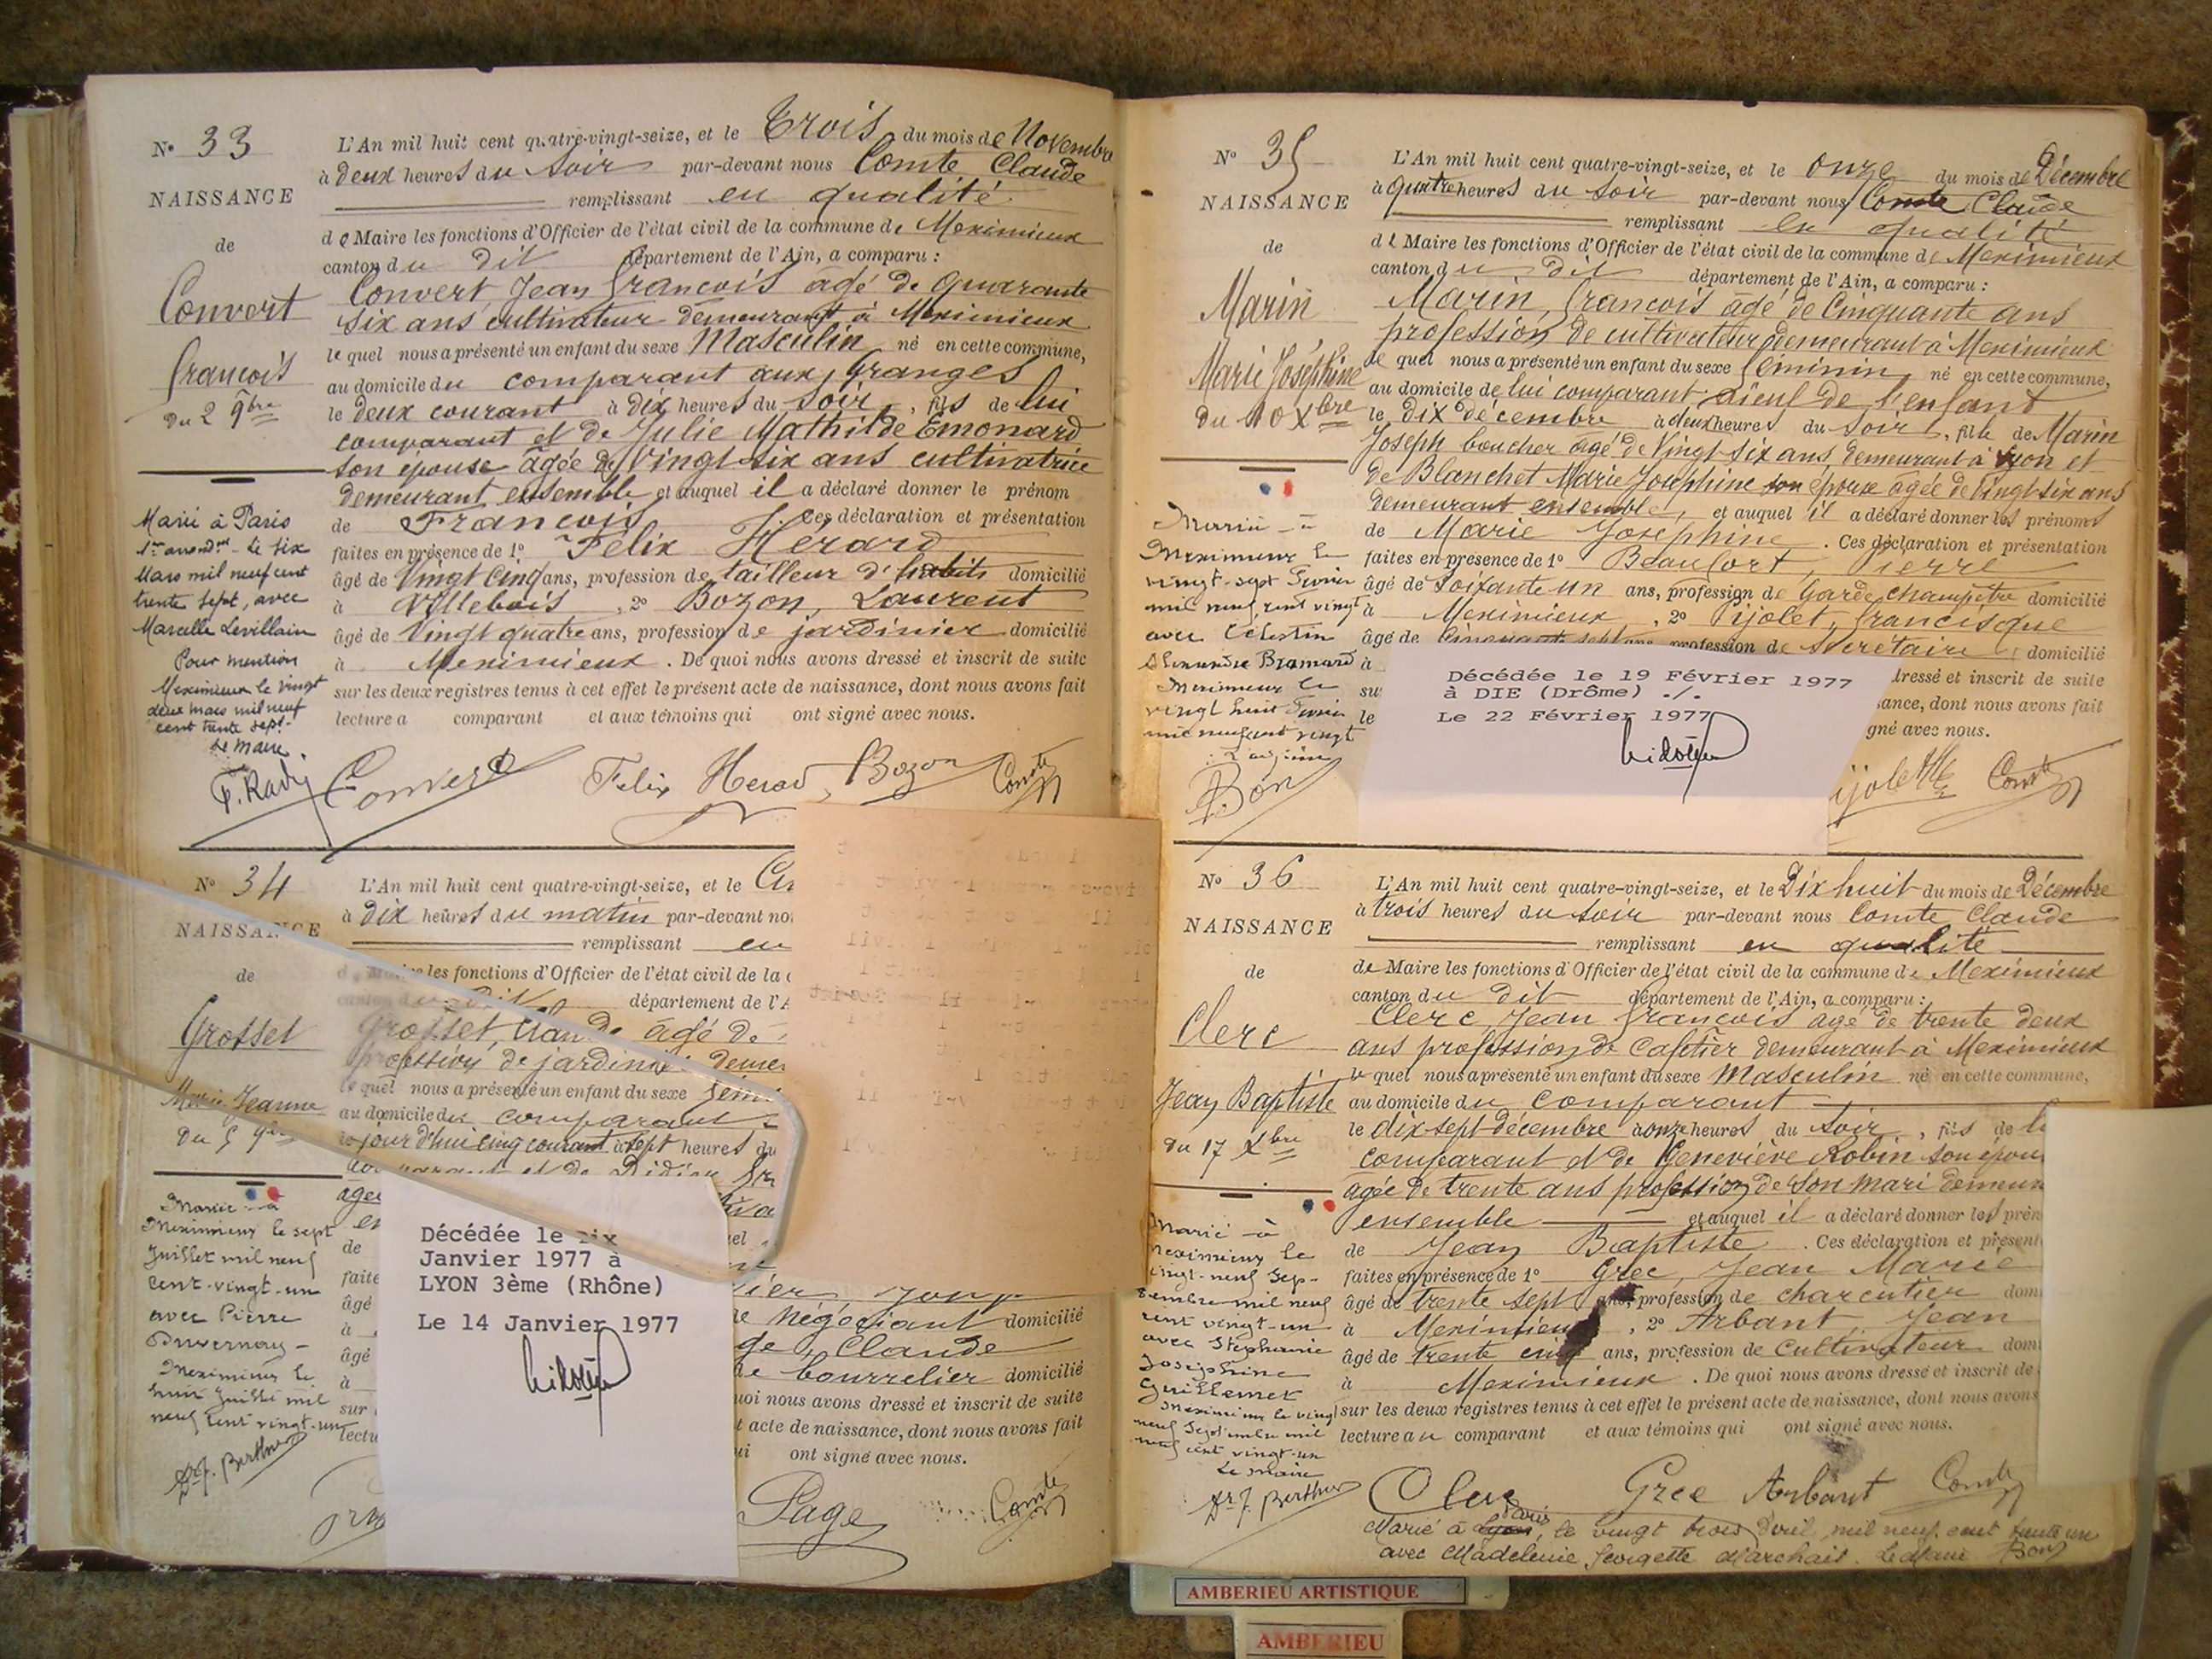 N° 33
NAISSANCE
de
Convert
François
du 2 9bre
Marié à Paris
1er arrondmt le six
Mars mil neuf cent
trente sept, avec
Marcelle Levillain
Pour mention
Meximieux le vingt
deux mars mil neuf
cent trente sept.
Le Maire
L'An mil huit cent quatre-vingt-seize, et le Trois du mois de Novembre
à deux heures du Soir par-devant nous Comte Claude
remplissant en qualité
de Maire les fonctions d'Officier de l'état civil de la commune de Meximieux
canton du dit département de l'Ain, a comparu :
Convert, Jean François âgé de quarante
six ans cultivateur demeurant à Meximieux
lequel nous a présenté un enfant du sexe Masculin né en cette commune,
au domicile du comparant aux Granges
le deux courant à dix heures du soir, fils de lui
comparant et de Julie Mathilde Emonard
son épouse âgée de vingt six ans cultivatrice
demeurant ensemble et auquel il a déclaré donner le prénom
de François. Ces déclaration et présentation
faites en présence de 1° Félix Herard
âgé de Vingt Cinq ans, profession de tailleur d'habits domicilié
à Villebois, 2° Bozon, Laurent
âgé de Vingt quatre ans, profession de jardinier domicilié
à Meximieux. De quoi nous avons dressé et inscrit de suite
sur les deux registres tenus à cet effet le présent acte de naissance, dont nous avons fait
lecture a comparant et aux témoins qui ont signé avec nous.
Convert Felix Herard Bozon Comte
N° 34
NAISSANCE
de
Grosset
Marie Jeanne
du 5 9bre
Mariée à
Meximieux le sept
Juillet mil neuf
cent vingt-un
avec Pierre
Duvernay
Meximieux le
huit Juillet mil
neuf cent vingt-un
Dr J. Berthier
L'An mil huit cent quatre-vingt-seize, et le
à dix heures du matin par-devant
remplissant en
de Maire les fonctions d'Officier de l'état civil de la
canton du dit département de
Grosset, Claude âgé de
profession de jardinier
lequel nous a présenté un enfant du sexe
au domicile du comparant
le jour d'hui cinq courant à sept heures du
comparant et de
Décédée le Dix
Janvier 1977 à
LYON 3ème (Rhône)
Le 14 Janvier 1977
de négociant domicilié
Claude
de bourrelier domicilié
quoi nous avons dressé et inscrit de suite
acte de naissance, dont nous avons fait
ont signé avec nous.
Page Comte
N° 35
NAISSANCE
de
Marin
Marie Joséphine
du 10 Xbre
Mariée à
Meximieux le
vingt-sept Février
mil neuf cent vingt
avec Célestin
Alexandre Bramard
Meximieux le
vingt huit Février
mil neuf cent vingt
Bon
L'An mil huit cent quatre-vingt-seize, et le onze du mois de Décembre
à quatre heures du soir par-devant nous Comte Claude
remplissant en qualité
de Maire les fonctions d'Officier de l'état civil de la commune de Meximieux
canton du dit département de l'Ain, a comparu :
Marin, François âgé de Cinquante ans
profession de cultivateur demeurant à Meximieux
lequel nous a présenté un enfant du sexe féminin, né en cette commune,
au domicile de lui comparant aïeul de l'enfant
le dix décembre à deux heures du soir, fille de Marin
Joseph boucher âgé de Vingt six ans demeurant à Lyon et
de Blanchet Marie Joséphine son épouse âgée de vingt six ans
demeurant ensemble, et auquel il a déclaré donner les prénoms
de Marie Joséphine. Ces déclaration et présentation
faites en présence de 1° Beaufort, Pierre
âgé de soixante un ans, profession de Garde champêtre domicilié
à Meximieux, 2° Pijolet, Francisque
âgé de Cinquante sept ans profession de Secrétaire domicilié
Décédée le 19 Février 1977
à DIE (Drôme) ./.
Le 22 Février 1977
dressé et inscrit de suite
naissance, dont nous avons fait
signé avec nous.
Comte
N° 36
NAISSANCE
de
Clerc
Jean Baptiste
du 17 Xbre
Marié à
Meximieux le
vingt-neuf Sep-
tembre mil neuf
cent vingt-un
avec Stephanie
Joséphine
Guillemet
Meximieux le vingt
neuf Septembre mil
neuf cent vingt-un
Le Maire
Dr J. Berthier
L'An mil huit cent quatre-vingt-seize, et le Dix huit du mois de Décembre
à trois heures du soir par-devant nous Comte Claude
remplissant en qualité
de Maire les fonctions d'Officier de l'état civil de la commune de Meximieux
canton du dit département de l'Ain, a comparu :
Clerc Jean François âgé de trente deux
ans profession de Cafetier demeurant à Meximieux
lequel nous a présenté un enfant du sexe Masculin né en cette commune,
au domicile du comparant
le dix-sept décembre à onze heures du soir, fils de
comparant et de Geneviève Robin son
agée de trente ans profession de son mari
ensemble et auquel il a déclaré donner les
de Jean Baptiste. Ces déclaration et
faites en présence de 1° Grec, Jean Marie
âgé de trente sept ans, profession de charcutier
à Meximieux, 2° Arbant Jean
âgé de trente cinq ans, profession de Cultivateur
à Meximieux. De quoi nous avons dressé et inscrit de
sur les deux registres tenus à cet effet le présent acte de naissance, dont nous avons
lecture au comparant et aux témoins qui ont signé avec nous.
Clerc Grec Arbant Comte
Marié à Paris, le vingt trois avril mil neuf cent trente un
avec Madeleine Georgette Marchais. Le Maire Bon
AMBERIEU ARTISTIQUE
AMBERIEU